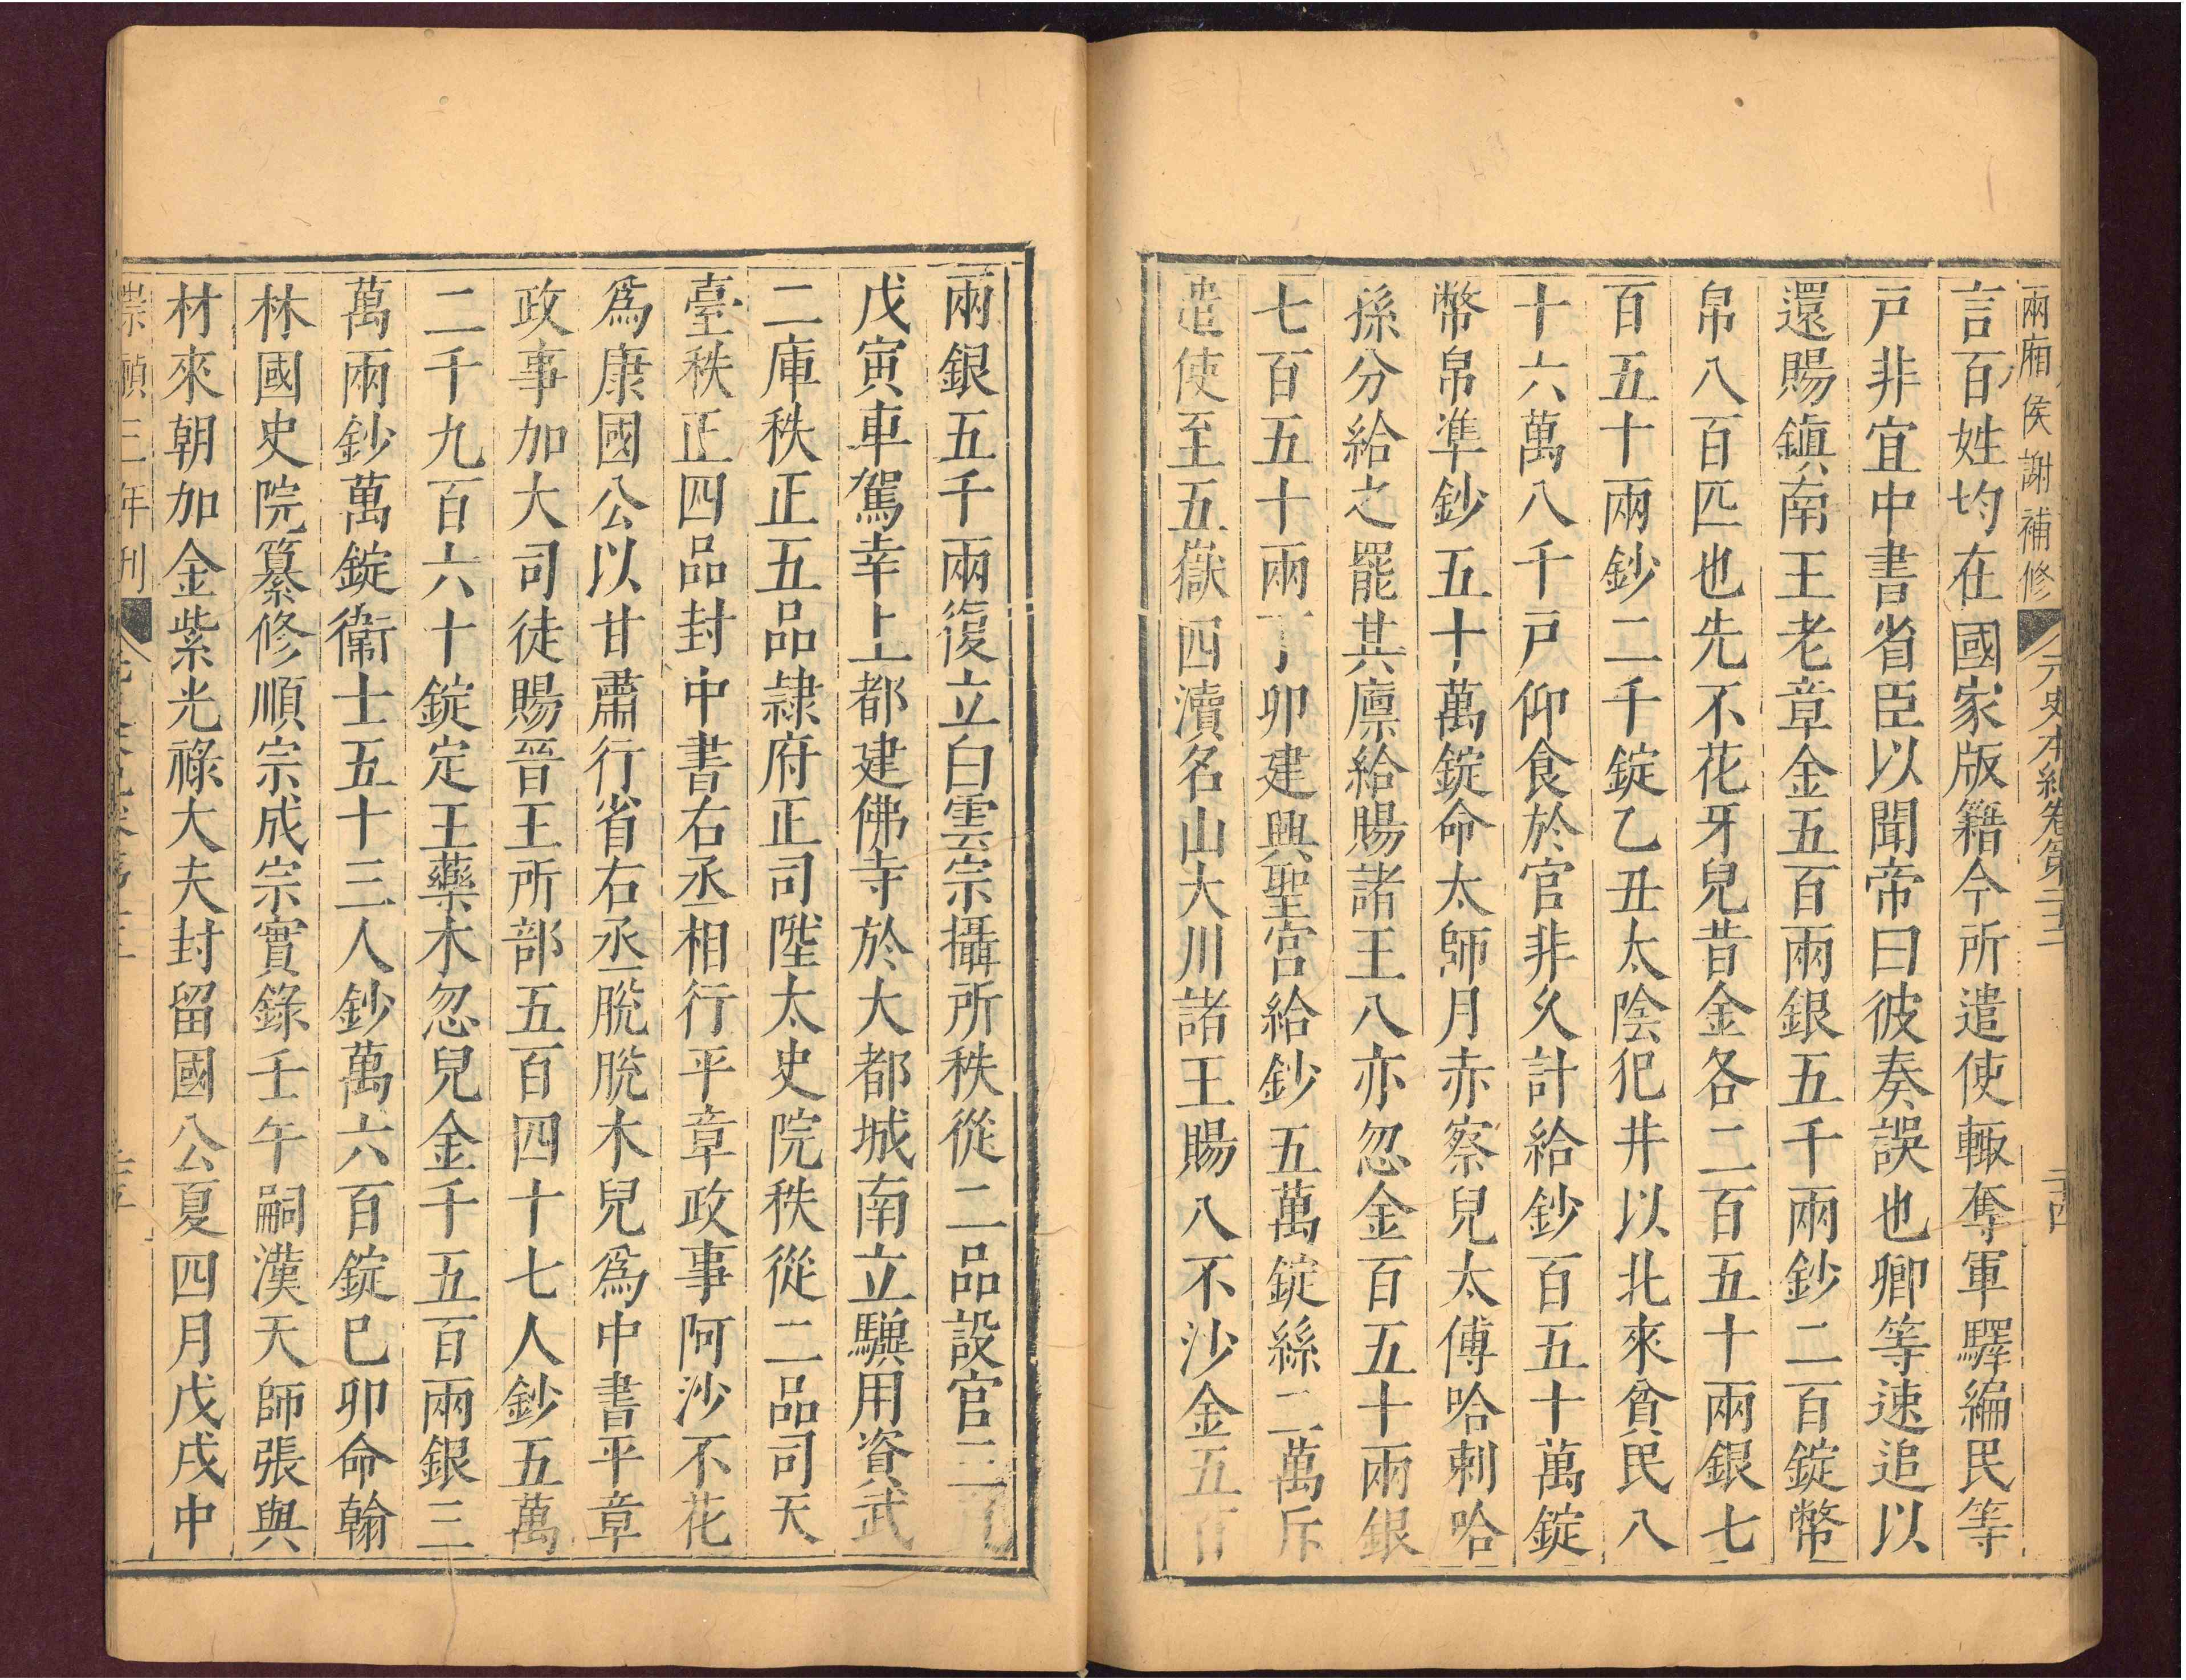 兩廂侯謝補修
元史本紀卷第二十三
二十四
言百姓均在國家版籍今所遣使輙奪軍驛編民等
戸非宜中書省臣以聞帝曰彼奏誤也卿等速追以
還賜鎮南王老章金五百兩銀五千兩鈔二百錠幣
帛八百匹也先不花牙兒昔金各二百五十兩銀七
百五十兩鈔二千錠乙丑太陰犯井以北來貧民八
十六萬八千戸仰食於官非久計給鈔百五十萬錠
幣帛準鈔五十萬錠命太師月赤察兒太傅哈剌哈
孫分給之罷其廪給賜諸王八亦忽金百五十兩銀
七百五十兩丁卯建興聖宮給鈔五萬錠絲二萬斤
遣使至五嶽四瀆名山大川諸王賜八不沙金五百
兩銀五千兩復立白雲宗攝所秩從二品設官三
戊寅車駕幸上都建佛寺於大都城南立驥用資武
二庫秩正五品隷府正司陞太史院秩從二品司天
臺秩正四品封中書右丞相行平章政事阿沙不花
爲康國公以甘肅行省右丞脫脫木兒爲中書平章
政事加大司徒賜晉王所部五百四十七人鈔五萬
二千九百六十錠定王藥木忽兒金千五百兩銀三
萬兩鈔萬錠衞士五十三人鈔萬六百錠巳卯命翰
林國史院纂修順宗成宗實錄壬午嗣漢天師張與
材來朝加金紫光祿大夫封留國公夏四月戊戌中
崇禎三年刊